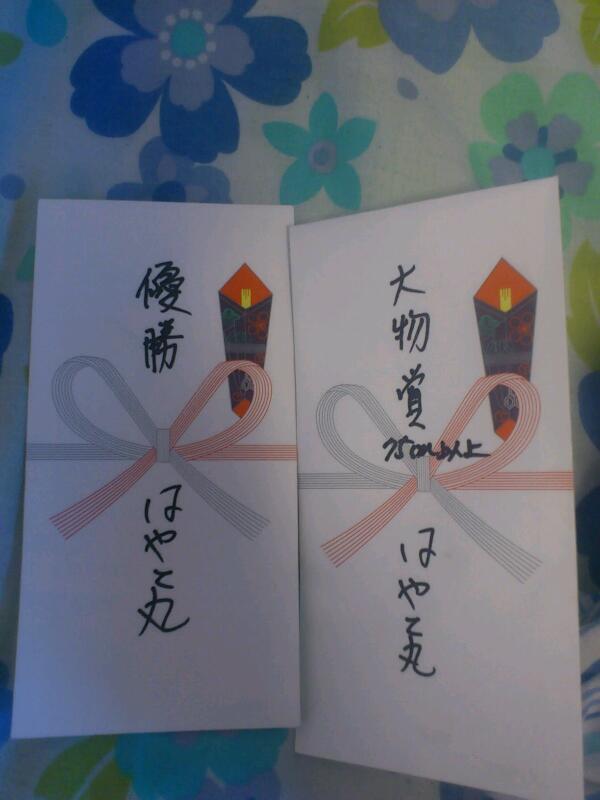 優勝
はやと丸
大物賞
75cm以上
はやと丸